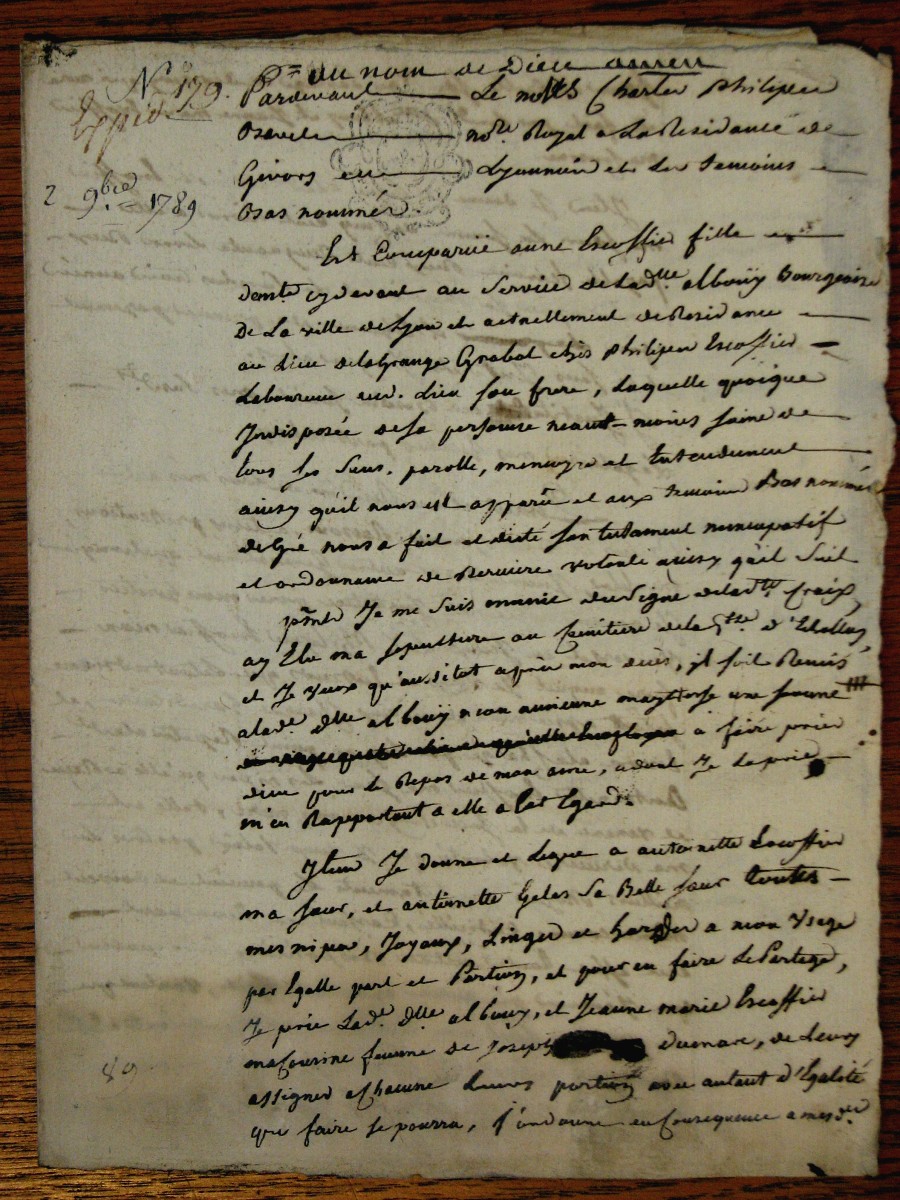 N° 179.
Expié
2 9bre 1789
au nom de Dieu amen
Pardevant Le Charles Philipe
nore Royal a La Residance de
Givors en Lyonnais et les temoins
Bas nommés.
Est Comparüe anne Escoffier fille
domte cydevant au Service de Ladlle albouÿ Bourgeoise
De La ville de Lyon et actuellement de Residance
au Lieu de la Grange Grabot chés philipe Escoffier
Laboureur aud. Lieu son frere, Laquelle quoique
Jndisposée de sa personne neant-moins saine de
tous ses Sens, parolle, memoyre et Entendement
ainsy qu'il nous est apparu et aux temoins Bas nommés
de Gré nous a fait et dicté son testament nuncupatif
et ordonnance de Derniere volonté ainsy qu'il Suit
pmt Je me suis munie du Signe de la Ste Croix,
ay Elu ma sepulture au Cimitiere de la psse d'Echallas,
et Je veux qu'aussitot après mon decès, il soit Remis
a lad. dlle albouÿ mon ancienne maytresse une somme
a faire prier
dieu pour le Repos de mon ame, a dont Je La prie
m'en Rapportant a elle a cet Egard.
Jtem Je donne et Legue a antoinette Escoffier
ma sœur, et antoinette Geles Sa Belle sœur toutes
mes nipes, Joyaux, Linges et hardes a mon Usage
par Egalle part et Portion, et pour en faire Le Partage,
Je prie Lade dlle albouy, et Jeanne marie Escoffier
ma Cousine femme de Joseph dumare, de Leurs
assigner a Chacune Leurs portion avec autant d'Egalité
que faire se pourra, J'ordonne en Consequence a mesd.
89